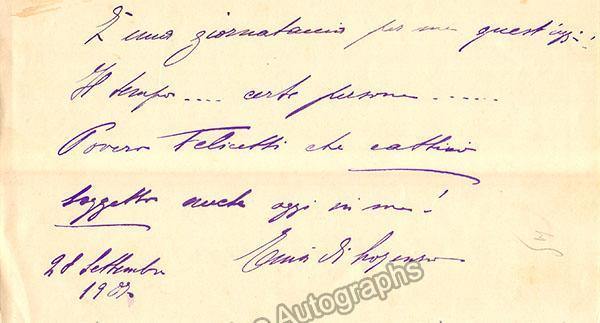 È una giornataccia per me quest'oggi!
Il tempo .... certe persone ......
Povero Felicetti che cattivo
soggetto anche oggi in me!
di Lorenzo
28 Settembre
190
Autographs